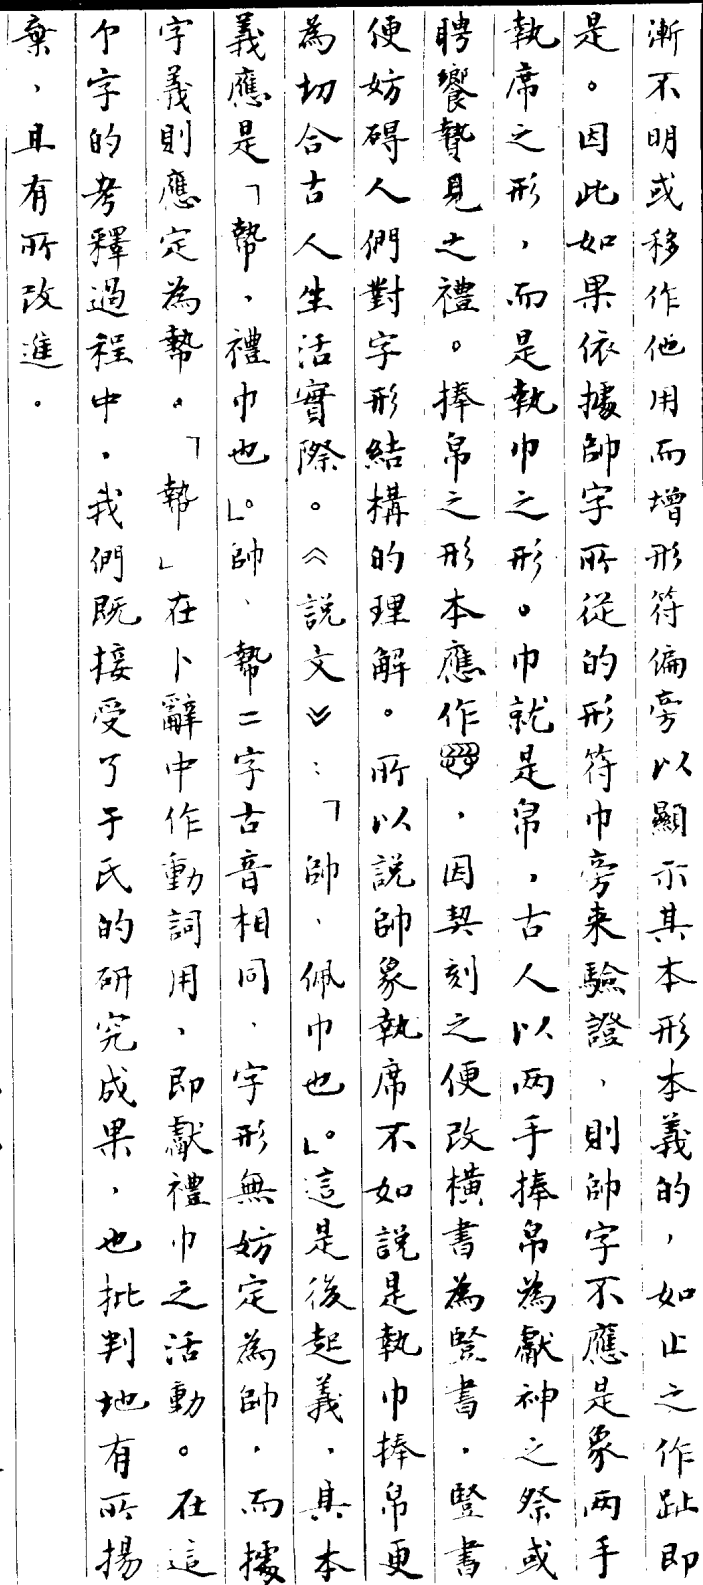 漸不明或移作他用而增形符偏旁以顯示其本形本義的，如止之作趾即
是。因此如果依據帥字所從的形符巾旁来驗證，則帥字不應是象两手
執席之形，而是執巾之形。巾就是帛，古人以两手捧帛為獻神之祭或
聘饗贄見之禮。捧帛之形本應作，因契刻之便改橫書為竪書，豎書
便妨碍人們對字形結構的理解。所以説帥象執席不如説是執巾捧帛更
為切合古人生活實際。《説文》：「帥、佩巾也」。這是後起義，其本
義應是「㡇，禮巾也」。帥、㡇二字古音相同，字形無妨定為帥，而據
字義則應定為㡇。「㡇」在卜辭中作動詞用，即獻禮巾之活動。在這
个字的考釋過程中，我們既接受了于氏的研究成果，也批判地有所揚
棄，且有所改進。